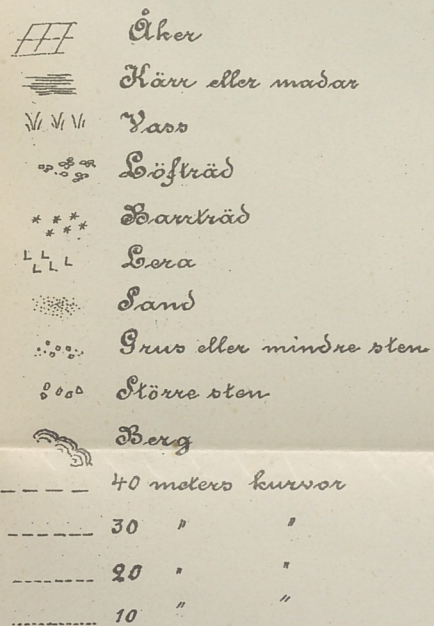 Åker
Kärr eller madar
Vass
Löfträd
Barrträd
Lera
Sand
Grus eller mindre sten
Större sten
Berg
40 meters kurvor
30 " "
20 " "
10 " "